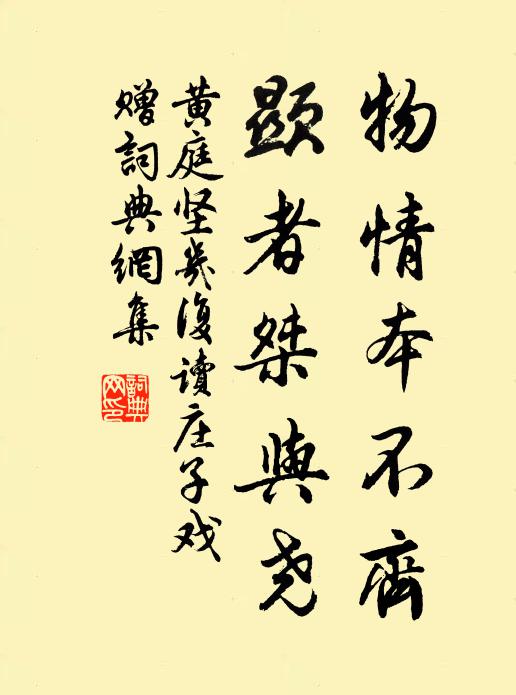 物情本不齊
顯者桀與尧
黄庭坚幾復讀庄子戏
贈詞典網集
詞典
网印